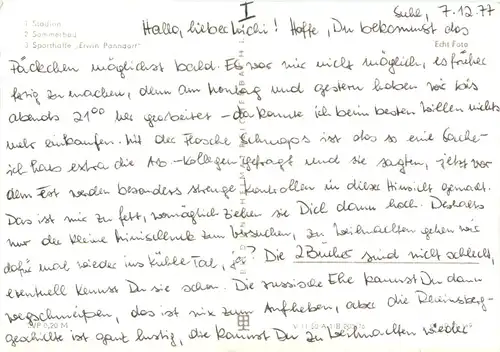 I
Suhl, 7.12.77
1 Stadion
2 Sommerbad
3 Sporthalle „Erwin Panndorf"
Echt Foto
Hallo, lieber Michi! Hoffe, Du bekommst das
Päckchen möglichst bald. Es war mir nicht möglich, es früher
fertig zu machen, denn am Montag und gestern haben wir bis
abends 21⁰⁰ Uhr gearbeitet – da konnte ich beim besten Willen nichts
mehr einkaufen. Mit der Flasche Schnaps ist das so eine Sache –
ich habe extra die Arb.-Kollegen gefragt und sie sagten, jetzt vor
dem Fest werden besonders strenge Kontrollen in dieser Hinsicht gemacht.
Das ist mir zu fett, womöglich ziehen sie Dich dann hoch. Deshalb
nur der kleine Minischluck zum Versuchen, zu Weihnachten gehen wir
dafür mal wieder ins Kühle Tal, ja? Die 2 Bücher sind nicht schlecht,
eventuell kennst Du sie schon. Die russische Ehe kannst Du dann
wegschmeißen, das ist nix zum Aufheben, aber die Rheinsberg-
geschichte ist ganz lustig, die kannst Du zu Weihnachten wieder
EVP 0,20 M